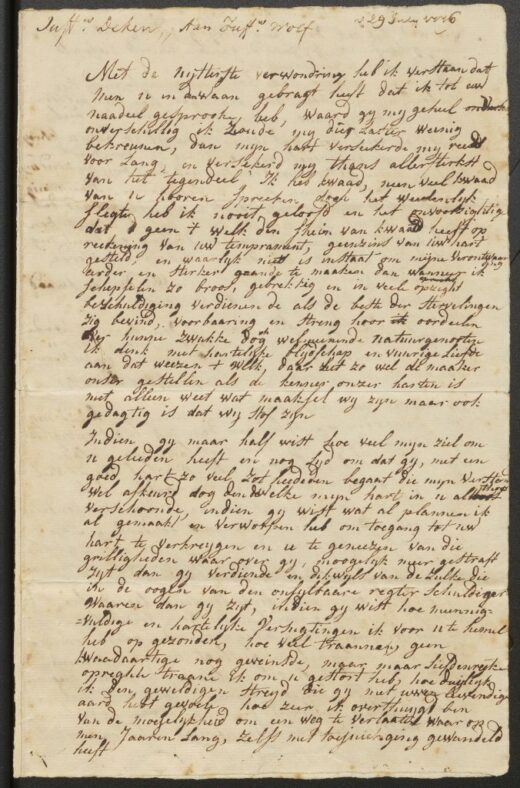 Juffw Deken, Aan Juffw Wolf 29 July 1776
Met de uytterste verwondring heb ik verstaan dat
men u in den waan gebragt heeft dat ik tot uw
naadeel gesprooke heb, waard gy my geheel
onverschillig ik zoude my dies laster weinig
bekreunen, dan mijn hart verzekerde my reeds
voor lang, en versekerd my thans allersterkst
van het tegendeel. Ik heb kwaad, neen veel kwaad
van u hooren spreeken doch het weesenlyk
slegte heb ik nooit gelooft en het onvoorzigtige
dat geen t welk den schein van kwaad heeft op
reekening van uw temprament, geenzins van uw hart
gesteld, en waarlyk niets is instaat om mijne verontwaar
diger en sterker gaande te maaken dan wanneer ik
schepselen zo broos, gebrekkig en in veel opzigt
beschuldiging verdienende als de beste der stervelingen
zig bevind, voorbaarig en streng hoor oordeelen
over hunne zwakke dog welmeenende natuurgenooten
ik denk met hartelyke blydschap en vuurige liefde
aan dat weezen t welk, daar het zo wel de maaker
onser gestellen als de kenner onzer harten is
niet alleen weet wat maaksel wy zyn maar ook
gedagtig is dat wy stof zyn
Indien gy maar half wist hoe veel mijn ziel om
u geleden heeft en nog lyd om dat gy, met een
goed hart zo veel zotheeden begaat die mijn verstand
wel afkeurd dog dewelke mijn hart in u altoos
verschoonde, indien gy wist wat al plannen ik
al gemaakt en verworpen heb om toegang tot uw
hart te verkrygen en u te geneezen van die
grilligheden waar over gy, moogelyk meer gestraft
zyt dan gy verdiende en dikwyls van de zulke die
in de oogen van den onfylbaare regter schuldiger
waaren dan gy zyt, indien gy wist hoe mennig-
=vuldige en hartelyke versugtingen ik voor u te hemel
heb op gezonden, hoe veel traanen, geen
kwaadaartige nog geveinsde, maar maar liefdenryke
opregte traanen ik om u gestort heb, hoe duidelyk
ik den geweldigen stryd die gy met uwen levendigen
aard hebt gevoele hoe zeer ik overtuigt ben
van de mogelykheid om een weg te verlaaten waar op
men Jaaren lang, zelfs met toejuiching gewandeld
heeft